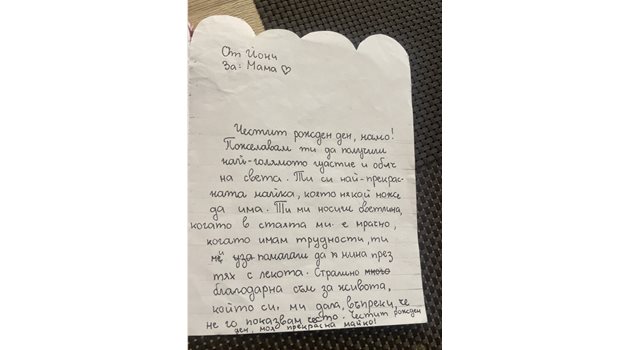 От Йони
За: Мама ♡
Честит рожден ден, мамо!
Пожелавам ти да получиш
най-голямото щастие и обич
на света. Ти си най-прекрас-
ната майка, която някой може
да има. Ти ми носиш светлина,
когато в стаята ми е мрачно,
когато имам трудности, ти
ми помагаш да мина през
тях с лекота. Страшно много
благодарна съм за живота,
който си ми дала, въпреки, че
не го показвам често. Честит рожден
ден, моя прекрасна майко!